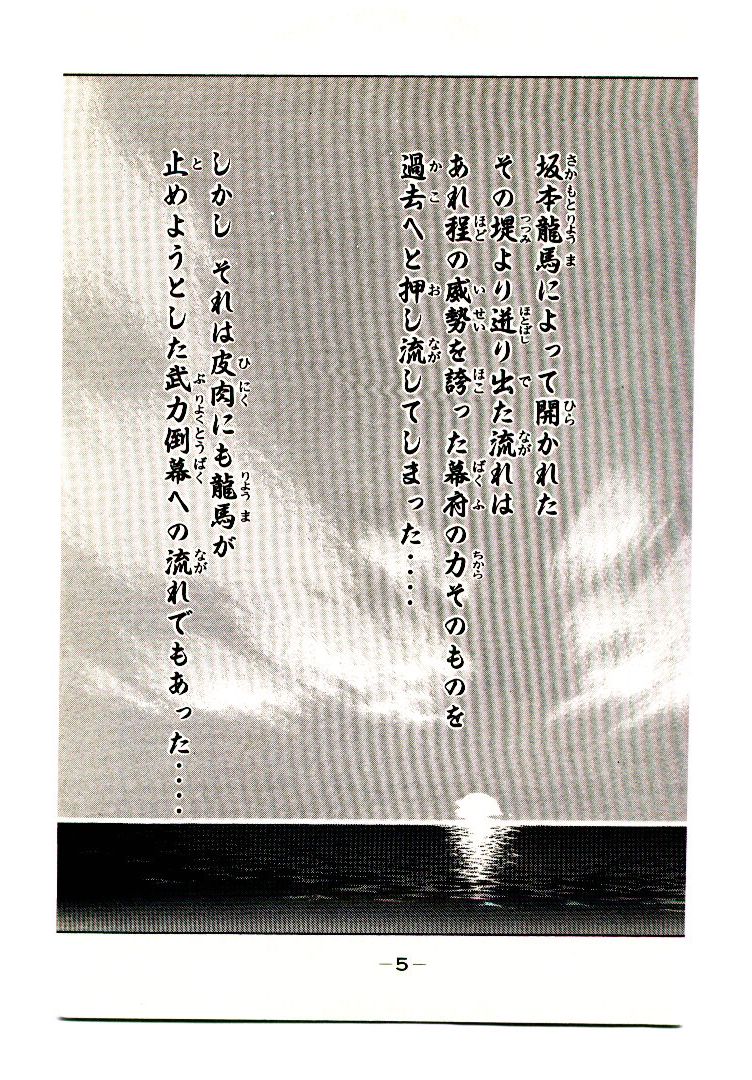 坂本龍馬によって開かれた
その堤より迸り出た流れは
あれ程の威勢を誇った幕府の力そのものを
過去へと押し流してしまった・・・・
しかし それは皮肉にも龍馬が
止めようとした武力倒幕への流れでもあった・・・・
－5－